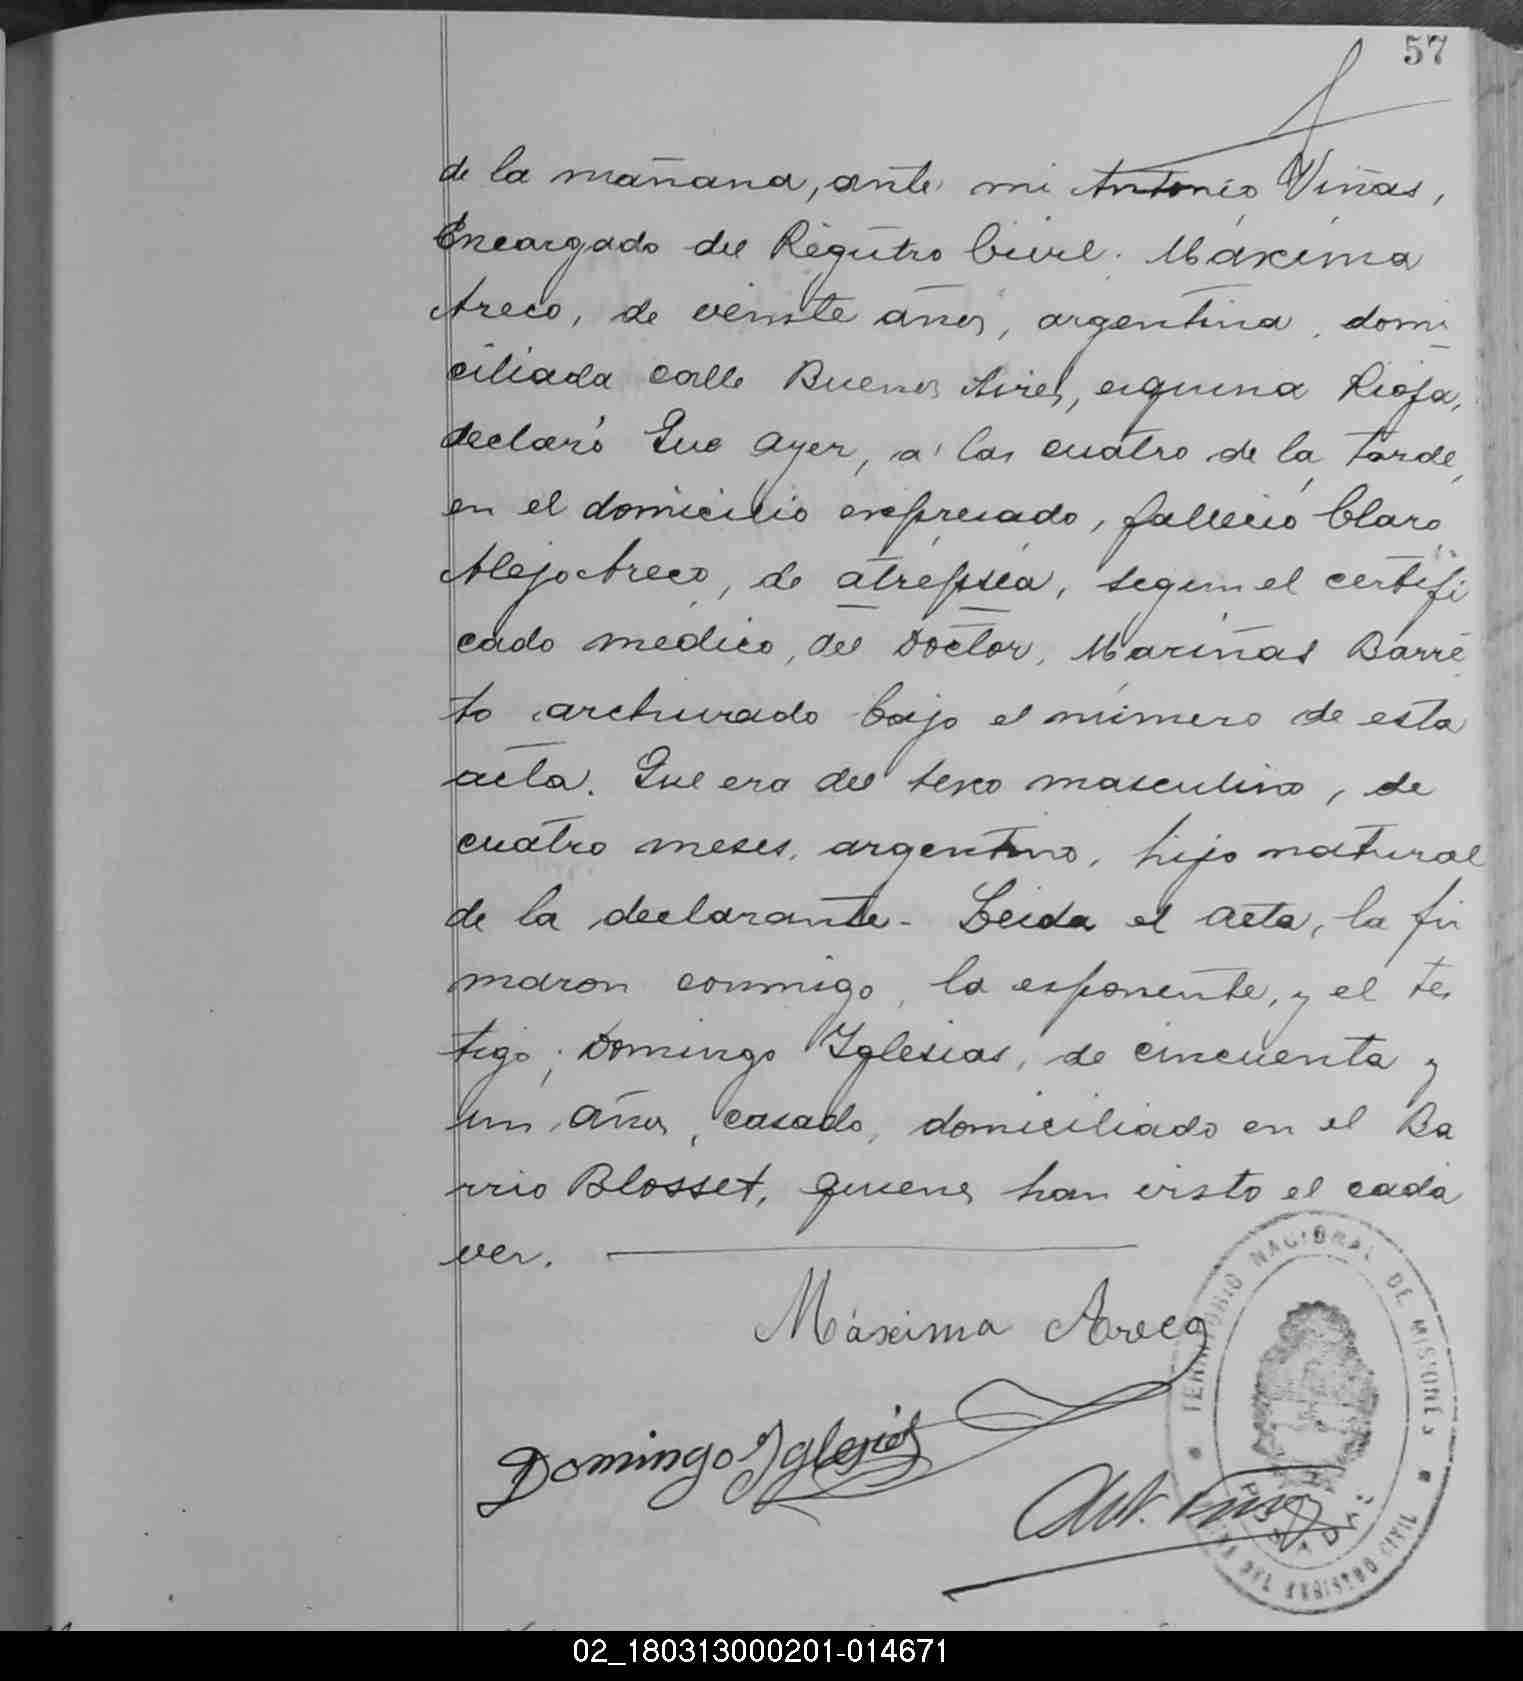 57
de la mañana, ante mi Antonio Viñas,
Encargado del Registro Civil. Máxima
Areco, de veinte años, argentina, domi
ciliada calle Buenos Aires, esquina Rioja,
declaró Que ayer, a las cuatro de la tarde,
en el domicilio expresado, falleció Claro
Alejo Areco, de atrepsia, segun el certifi
cado médico, del Doctor, Mariñas Barre
to archivado bajo el número de esta
acta. Que era del sexo masculino, de
cuatro meses, argentino, hijo natural
de la declarante- Leida el acta, la fir
maron conmigo, la exponente, y el tes
tigo; Domingo Yglesias, de cincuenta y
un años, casado, domiciliado en el Ba
rrio Blosset, quienes han visto el cadá
ver.
Máxima Areco
Domingo Yglesias
Ant. Viñas
TERRITORIO NACIONAL DE MISIONES
POSADAS
DEL REGISTRO CIVIL
02_180313000201-014671